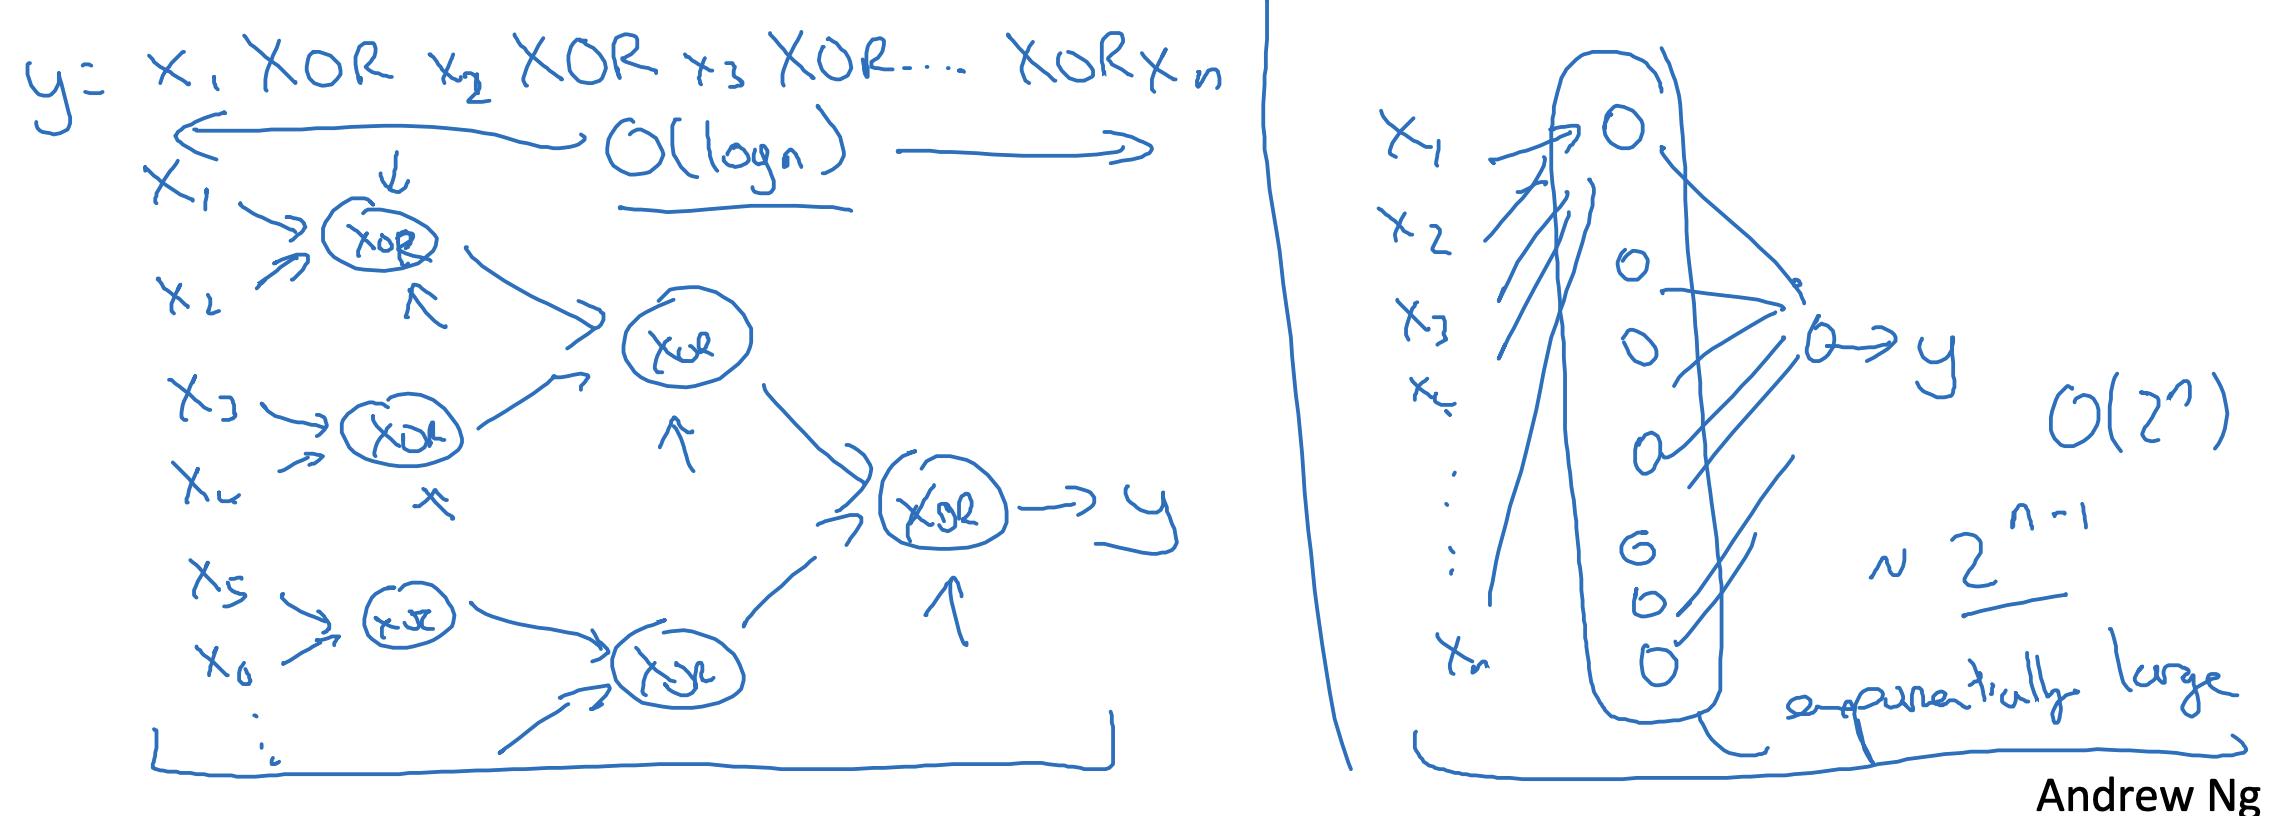 y = x₁ XOR x₂ XOR x₃ XOR .... XOR xₙ
O(log n)
x₁
XOR
x₂
XOR
x₃
XOR
x₄
XOR
y
x₅
XOR
x₆
XOR
x₁
x₂
x₃
x₄
y
O(2ⁿ)
~ 2ⁿ⁻¹
xₙ
exponentially large
Andrew Ng